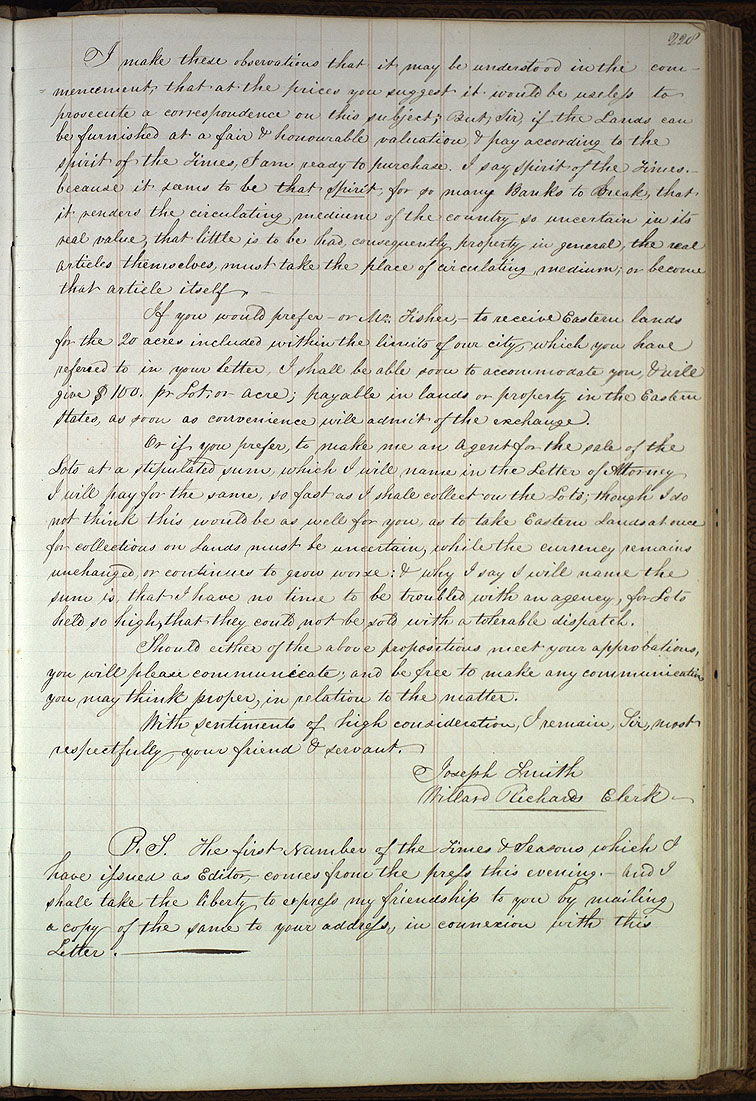 220
I make these observations that it may be understood in the com-
=mencement, that at the prices you suggest it would be useless to
prosecute a correspondence on this subject; But, Sir, if the Lands can
be furnished at a fair & honourable valuation, & pay according to the
spirit of the Times, I am ready to purchase. I say spirit of the Times.—
because it seems to be that spirit, for so many Banks to Break, that
it renders the circulating medium of the country so uncertain in its
real value, that little is to be had, consequently property in general, the real
articles themselves, must take the place of circulating medium; or become
that article itself.—
If you would prefer—or Mr. Fisher,—to receive Eastern lands
for the 20 acres included within the limits of our city, which you have
referred to in your letter, I shall be able soon to accommodate you, & will
give $100. pr Lot. or acre; payable in lands or property in the Eastern
States, as soon as convenience will admit of the exchange.
Or if you prefer, to make me an Agent for the sale of the
Lots at a stipulated sum, which I will name in the Letter of Attorney
I will pay for the same, so fast as I shall collect on the Lots; though I do
not think this would be as well for you, as to take Eastern Lands at once
for collections on Lands must be uncertain, while the currency remains
unchanged, or continues to grow worse; & why I say I will name the
sum is, that I have no time to be troubled with an agency, for Lots
held so high, that they could not be sold with a tolerable dispatch.
Should either of the above propositions meet your approbations,
you will please communicate; and be free to make any communication
you may think proper, in relation to the matter.
With sentiments of high consideration, I remain, Sir, most
respectfully your friend & servant.
Joseph Smith
Willard Richards Clerk—
P. S. The first Number of the Times & Seasons which I
have issued as Editor, comes from the press this evening.—and I
shall take the liberty to express my friendship to you by mailing
a copy of the same to your address, in connexion with this
Letter.